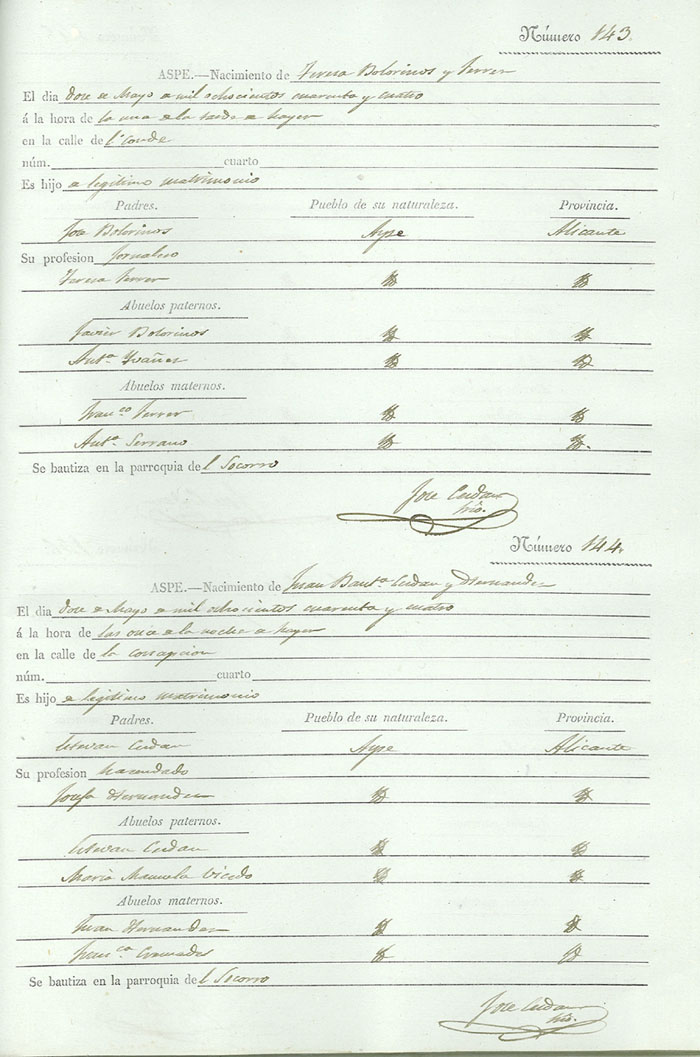 Número 143.
ASPE.—Nacimiento de Teresa Bolorinos y Ferrer
El dia doce de Mayo de mil ochocientos cuarenta y cuatro
á la hora de la una de la tarde de hayer
en la calle de l Conde
núm. cuarto
Es hijo de legitimo matrimonio
Padres. Pueblo de su naturaleza. Provincia.
Jose Bolorinos Aspe Alicante
Su profesion Jornalero
Teresa Ferrer
Abuelos paternos.
Javier Bolorinos
Antª Yvañez
Abuelos maternos.
Francº Ferrer
Antª Serrano
Se bautiza en la parroquia de l Socorro
Jose Cerdan
Número 144.
ASPE.—Nacimiento de Juan Bautª Cerdan y Hernandez
El dia doce de Mayo de mil ochocientos cuarenta y cuatro
á la hora de las once de la noche de hayer
en la calle de la
núm. cuarto
Es hijo de legitimo matrimonio
Padres. Pueblo de su naturaleza. Provincia.
Estevan Cerdan Aspe Alicante
Su profesion hacendado
Josefa Hernandez
Abuelos paternos.
Estevan Cerdan
Maria Manuela Vicedo
Abuelos maternos.
Juan Hernandez
Francª Cremades
Se bautiza en la parroquia de l Socorro
Jose Cerdan